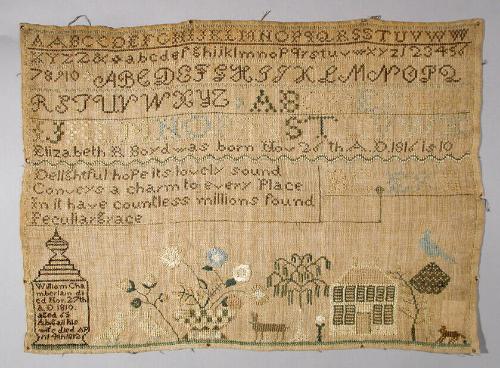 AABCCDEFGHIJKLMNOPQRSSTUVWW
XYZZ&abcdefghijklmnopqrstuvwxyz123456
78910 ABCDEFGHIJKLMNOPQ
RSTUVWXYZ AB E
NO ST
Elizabeth B Boyd was born Nov 26th A D 1816 is 10
Delightful hope its lovely sound
Conveys a charm to every Place
In it have countless millions found
Peculiar grace
William Cha
mberlain di
ed Nov. 27th
A D 1810.
aged 63
Abigail his
wife died AP